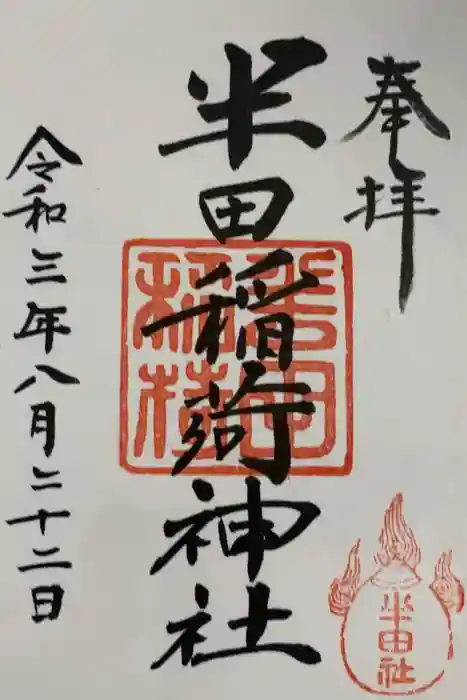 奉拝
半田稲荷神社
令和三年八月二十二日
半田社